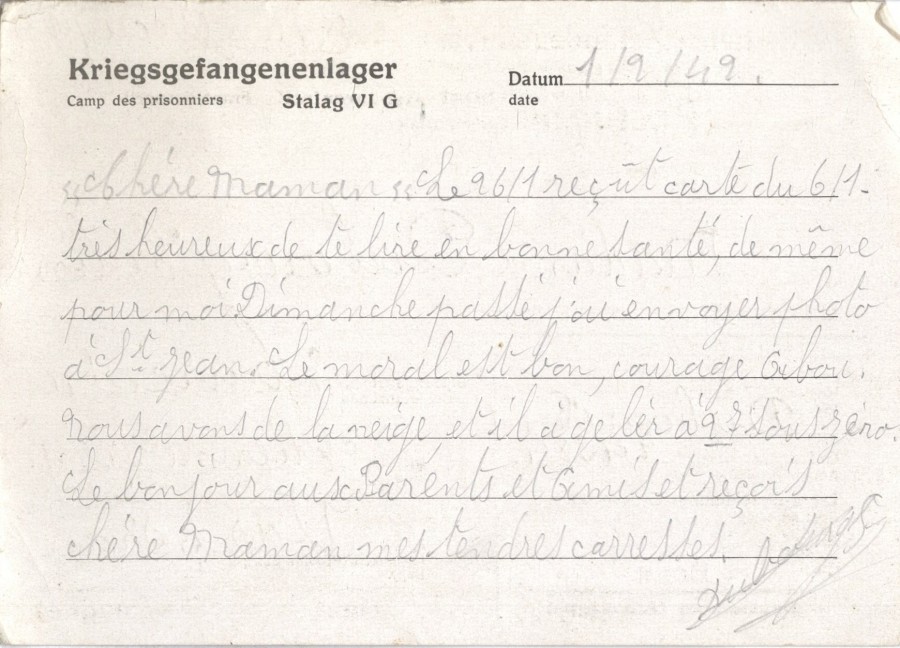 Kriegsgefangenenlager
Camp des prisonniers Stalag VI G
Datum 1/2/42.
date
"Chére Maman" Le 26/1 reçût carte du 6/1-
très heureux de te lire en bonne santé, de même
pour moi. Dimanche passé j'ai envoyer photo
à St Jean. Le moral est bon, courage
Nous avons de la neige, et il à geler à sous zéro.
Le bonjour aux Parents et Amis et reçois
chére Maman mes tendres carresses.